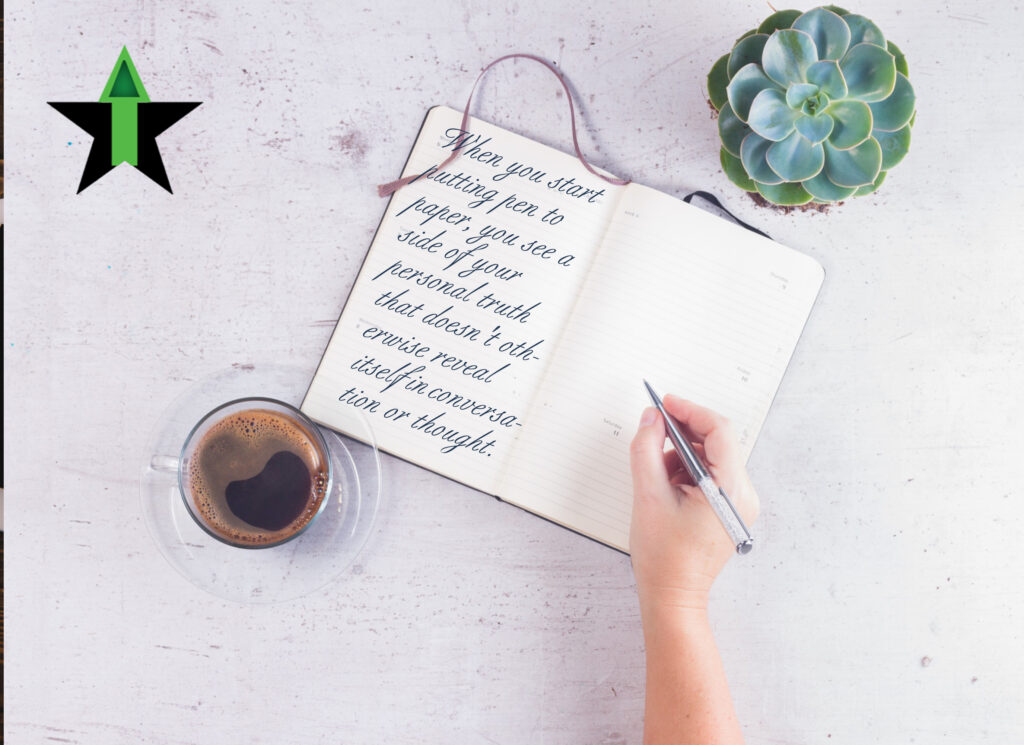 When you start
putting pen to
paper, you see a
side of your
personal truth
that doesn't oth-
erwise reveal
itself in conversa-
tion or thought.
Saturday
11